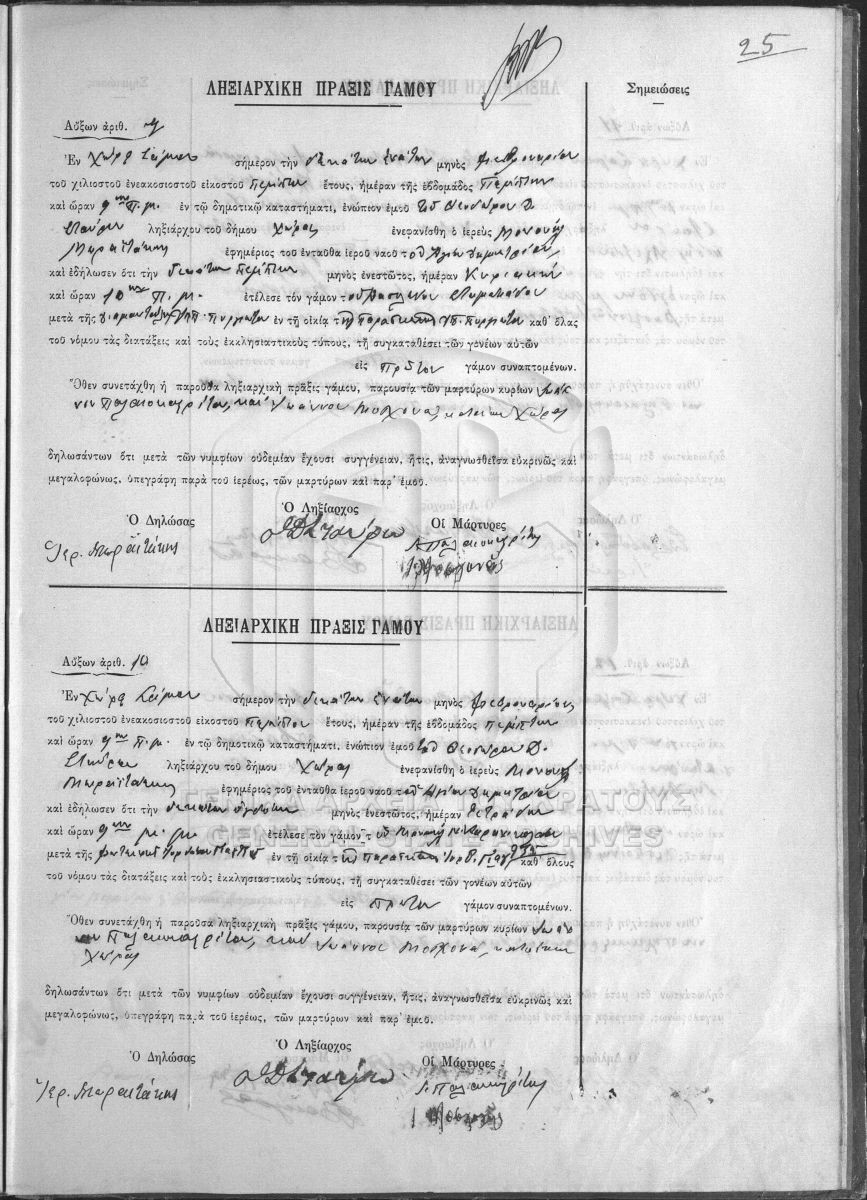 25
ΛΗΞΙΑΡΧΙΚΗ ΠΡΑΞΙΣ ΓΑΜΟΥ
Σημειώσεις
Αὔξων ἀριθ. 9
Ἐν Χώρᾳ Σάμου σήμερον τὴν δεκάτην ἐνάτην μηνὸς Φεβρουαρίου
τοῦ χιλιοστοῦ ἐνεακοσιοστοῦ εἰκοστοῦ πέμπτου ἔτους, ἡμέραν τῆς ἑβδομάδος Πέμπτην
καὶ ὥραν 9ην π.μ. ἐν τῷ δημοτικῷ καταστήματι, ἐνώπιον ἐμοῦ τοῦ Θεοδώρου Δ.
Σταύρου ληξιάρχου τοῦ δήμου Χώρας ἐνεφανίσθη ὁ ἱερεὺς Μανουὴλ
Μαραϊτάκης ἐφημέριος τοῦ ἐνταῦθα ἱεροῦ ναοῦ τοῦ Ἁγίου Δημητρίου,
καὶ ἐδήλωσεν ὅτι τὴν δεκάτην πέμπτην μηνὸς ἐνεστῶτος, ἡμέραν Κυριακὴν
καὶ ὥραν 10ην π.μ. ἐτέλεσε τὸν γάμον τοῦ
μετὰ τῆς ἐν τῇ οἰκίᾳ τ καθ᾽ ὅλας
τοῦ νόμου τὰς διατάξεις καὶ τοὺς ἐκκλησιαστικοὺς τύπους, τῇ συγκαταθέσει τῶν γονέων αὐτῶν
εἰς πρῶτον γάμον συναπτομένων.
Ὅθεν συνετάχθη ἡ παροῦσα ληξιαρχικὴ πρᾶξις γάμου, παρουσίᾳ τῶν μαρτύρων κυρίων Ἰωάν
νου Παλαιοκαρίτου, καὶ Ἰωάννου Μοσχονᾶ, κατοίκων Χώρας
δηλωσάντων ὅτι μετὰ τῶν νυμφίων οὐδεμίαν ἔχουσι συγγένειαν, ἥτις, ἀναγνωσθεῖσα εὐκρινῶς καὶ
μεγαλοφώνως, ὑπεγράφη παρὰ τοῦ ἱερέως, τῶν μαρτύρων καὶ παρ᾽ ἐμοῦ.
Ὁ Δηλώσας Ὁ Ληξίαρχος Οἱ Μάρτυρες
Ἱερ. Μαραϊτάκης
ΛΗΞΙΑΡΧΙΚΗ ΠΡΑΞΙΣ ΓΑΜΟΥ
Αὔξων ἀριθ. 10
Ἐν Χώρᾳ Σάμου σήμερον τὴν δεκάτην ἐνάτην μηνὸς Φεβρουαρίου
τοῦ χιλιοστοῦ ἐνεακοσιοστοῦ εἰκοστοῦ πέμπτου ἔτους, ἡμέραν τῆς ἑβδομάδος πέμπτην
καὶ ὥραν 9ην π.μ. ἐν τῷ δημοτικῷ καταστήματι, ἐνώπιον ἐμοῦ τοῦ Θεοδώρου Δ.
Σταύρου ληξιάρχου τοῦ δήμου Χώρας ἐνεφανίσθη ὁ ἱερεὺς Μανουὴλ
Μαραϊτάκης ἐφημέριος τοῦ ἐνταῦθα ἱεροῦ ναοῦ τοῦ Ἁγίου Δημητρίου
καὶ ἐδήλωσεν ὅτι τὴν δεκάτην ὀγδόην μηνὸς ἐνεστῶτος, ἡμέραν Τετράδην
καὶ ὥραν 9ην μ.μ. ἐτέλεσε τὸν γάμον τοῦ
μετὰ τῆς ἐν τῇ οἰκίᾳ τ καθ᾽ ὅλους
τοῦ νόμου τὰς διατάξεις καὶ τοὺς ἐκκλησιαστικοὺς τύπους, τῇ συγκαταθέσει τῶν γονέων αὐτῶν
εἰς πρῶτον γάμον συναπτομένων.
Ὅθεν συνετάχθη ἡ παροῦσα ληξιαρχικὴ πρᾶξις γάμου, παρουσίᾳ τῶν μαρτύρων κυρίων Ἰωάν
νου Παλαιοκαρίτου, καὶ Ἰωάννου Μοσχονᾶ, κατοίκων
Χώρας
δηλωσάντων ὅτι μετὰ τῶν νυμφίων οὐδεμίαν ἔχουσι συγγένειαν, ἥτις, ἀναγνωσθεῖσα εὐκρινῶς καὶ
μεγαλοφώνως, ὑπεγράφη παρὰ τοῦ ἱερέως, τῶν μαρτύρων καὶ παρ᾽ ἐμοῦ.
Ὁ Δηλώσας Ὁ Ληξίαρχος Οἱ Μάρτυρες
Ἱερ. Μαραϊτάκης
ΓΕΝΙΚΑ ΑΡΧΕΙΑ ΤΟΥ ΚΡΑΤΟΥΣ
GENERAL STATE ARCHIVES